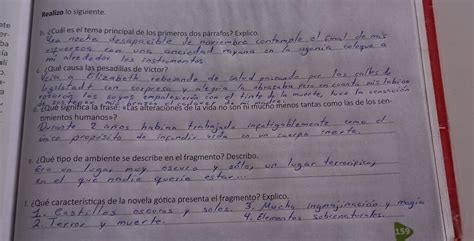 Realizo lo siguiente.
b. ¿Cuál es el tema principal de los primeros dos párrafos? Explico.
Una noche desapacible de noviembre contemple el final de mis
esfuerzos con una ansiedad rayana en la agonía coloque a
mi alrededor los instrumentos
c. ¿Qué causa las pesadillas de Víctor?
Veía a Elizabeth rebosando de salud paseando por las calles de
sorpresa y alegría la abrazaba pero en cuanto mis labios
rozaron los suyos empalidecían con el tinte de la muerte, tuve la sensación
de sostener mis brazos el cadáver de mi madre.
d. ¿Qué significa la frase: «Las alteraciones de la vida no son ni mucho menos tantas como las de los sen-
timientos humanos»?
Durante 2 años habían trabajado infatigablemente como el
único propósito de infundir vida en un cuerpo inerte.
e. ¿Qué tipo de ambiente se describe en el fragmento? Describo.
Era un lugar muy oscuro y sólo, un lugar terrorífico,
en el que nadie quería estar...
f. ¿Qué características de la novela gótica presenta el fragmento? Explico.
1. Castillos oscuros y solos. 3. Mucha imaginación y magia
2. Terror y muerte. 4. Elementos sobrenaturales.
159